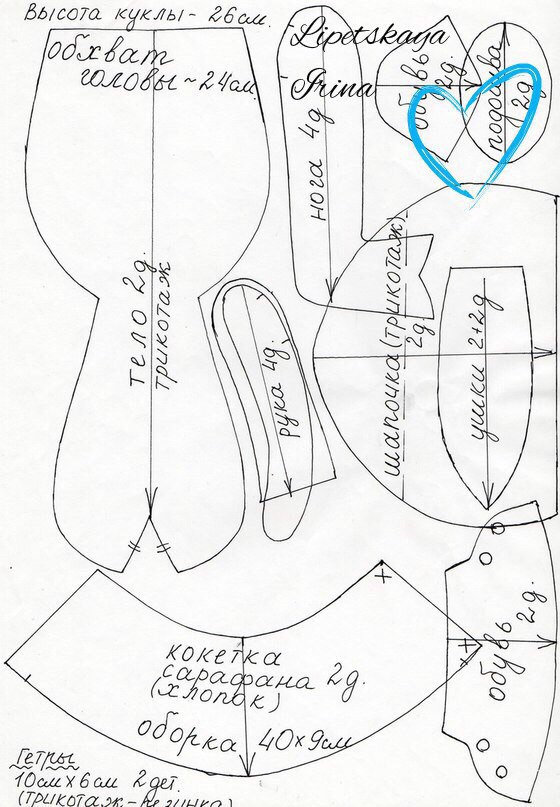 Высота куклы - 26см.
обхват
головы ~ 24см.
Lipetskaya
Irina
обувь
2д.
подошва
2д.
нога 4д
тело 2д.
трикотаж
рука 4д.
шапочка (трикотаж)
2д.
ушки 2+2д
обувь 2д.
кокетка
сарафана 2д.
(хлопок)
оборка 40х9см
Гетры
10смх6см 2дет.
(трикотаж-резинка)